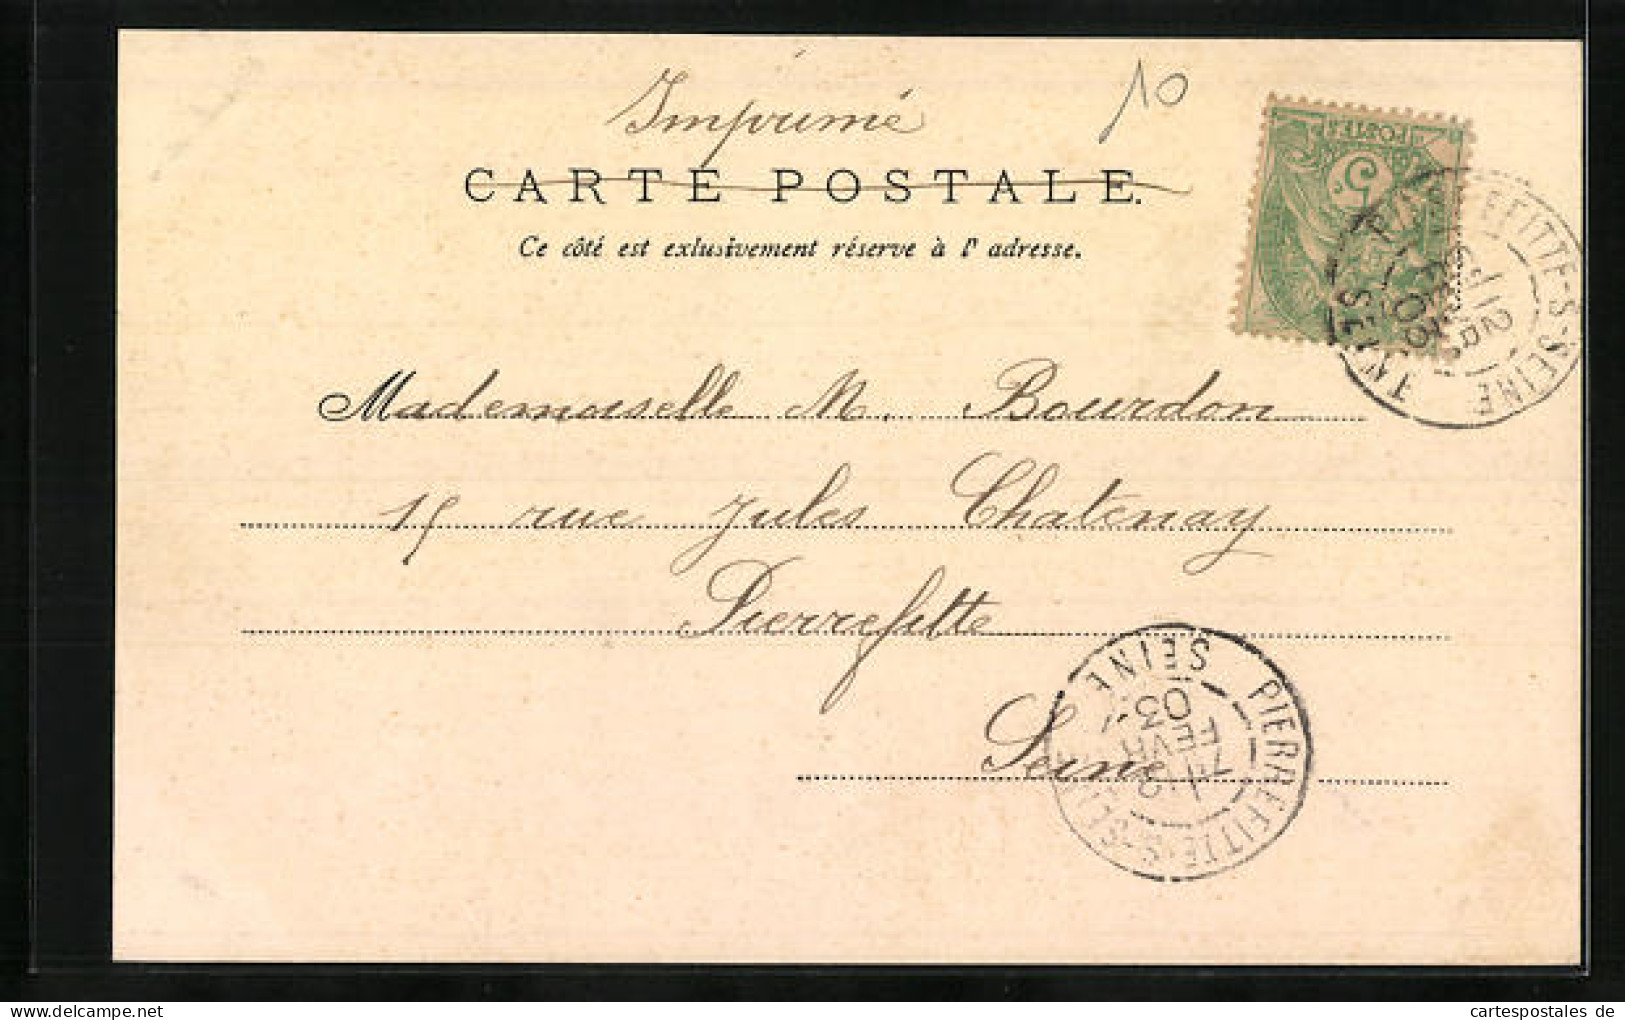 Imprimé
10
CARTE POSTALE.
Ce côté est exlusivement réserve à l' adresse.
POSTES
5
PIERREFITTE-S-SEINE
SEINE
FEVR
03
Mademoiselle M. Bourdon
15 rue Jules Chatenay
Pierrefitte
Seine
PIERREFITTE-S-SEINE
SEINE
FEVR
03
cartespostales de
www.delcampe.net